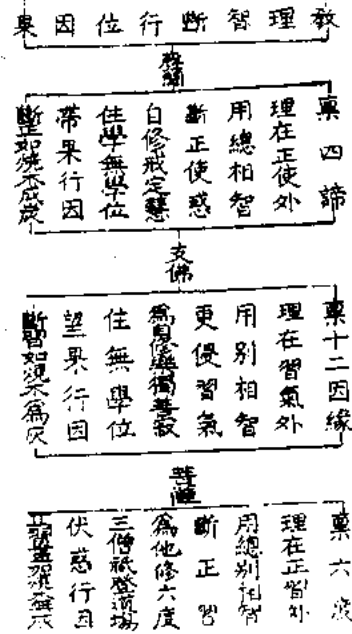 教理智斷行位因果
聲聞
稟四諦
理在正使外
用總相智
斷正使惑
自修戒定慧
住學無學位
帶果行因
斷正如燒木成炭
支佛
稟十二因緣
理在習氣外
用別相智
更侵習氣
為自修樂獨善寂
住無學位
望果行因
斷習如燒木為灰
菩薩
稟六度
理在正習外
用總別相智
斷正習
為他修六度
三僧祇登道場
伏惑行因